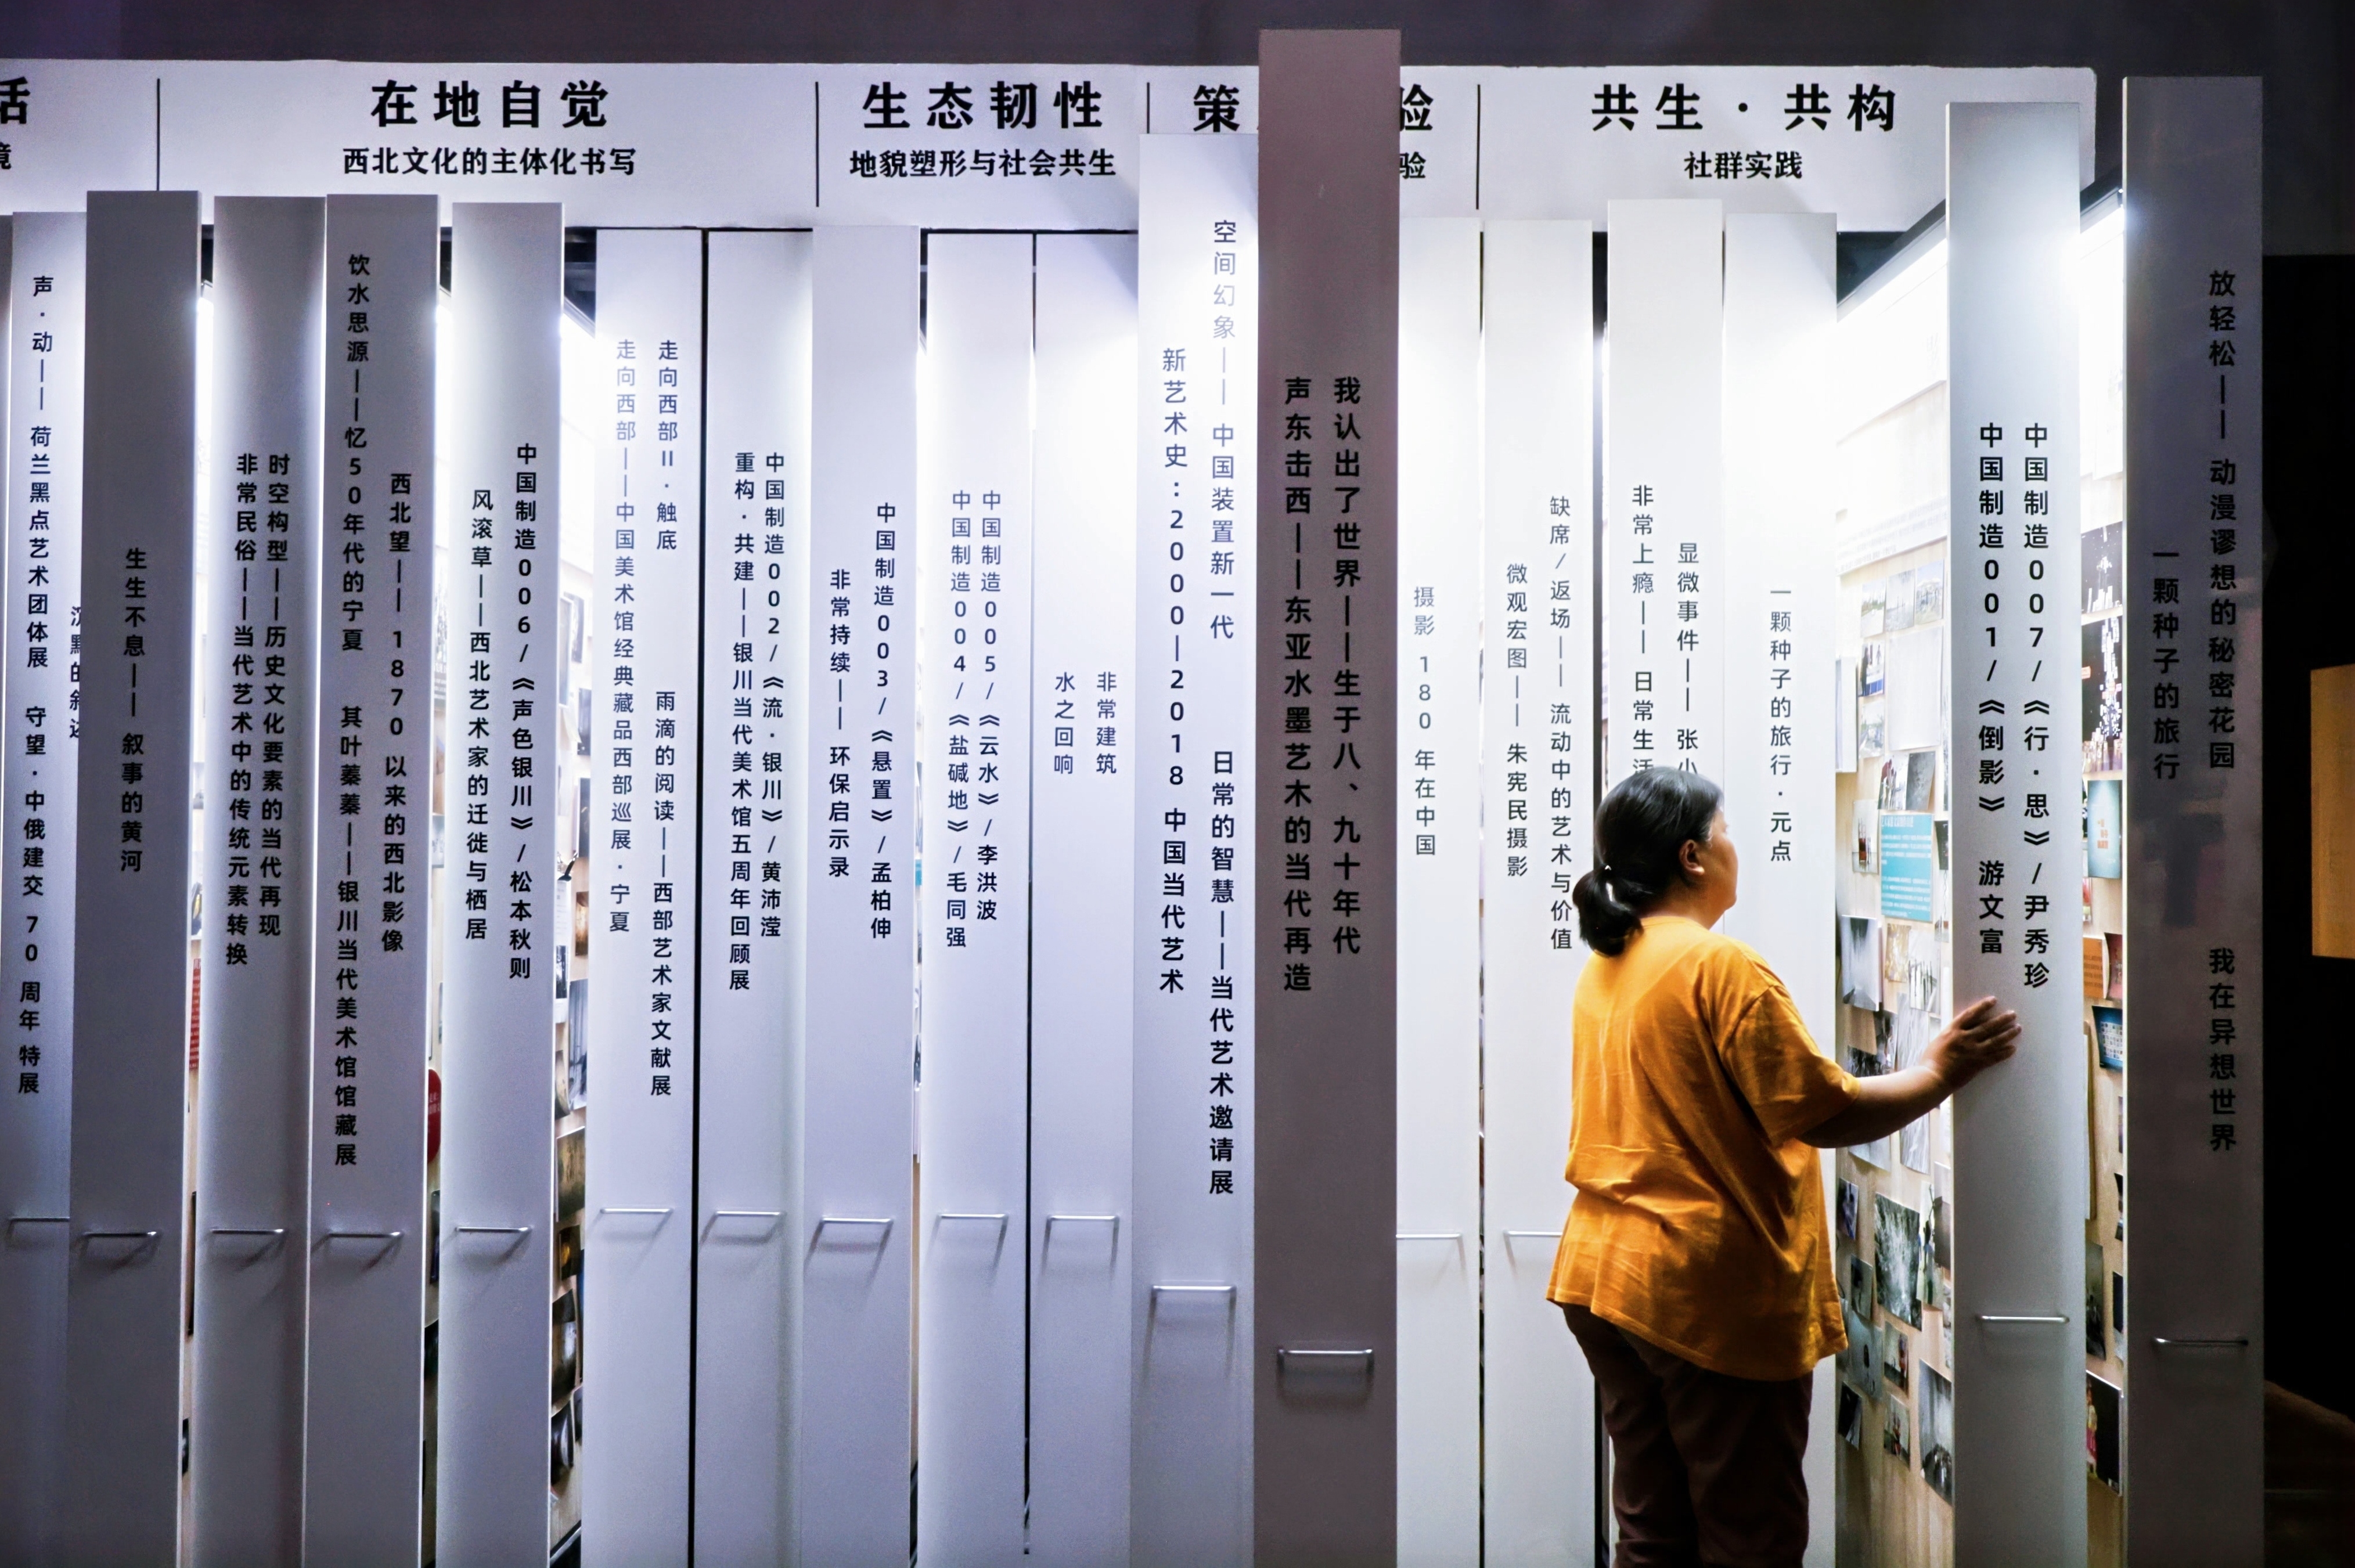 话
境
在地自觉
西北文化的主体化书写
生态韧性
地貌塑形与社会共生
策
验
验
共生·共构
社群实践
声·动——荷兰黑点艺术团体展 守望·中俄建交 70 周年 特展
沉默的叙述
生生不息——叙事的黄河
时空构型——历史文化要素的当代再现
非常民俗——当代艺术中的传统元素转换
饮水思源——忆50年代的宁夏 其叶蓁蓁——银川当代美术馆馆藏展
西北望——1870 以来的西北影像
中国制造006/《声色银川》/松本秋则
风滚草——西北艺术家的迁徙与栖居
走向西部II·触底 雨滴的阅读——西部艺术家文献展
走向西部——中国美术馆经典藏品西部巡展·宁夏
中国制造002/《流·银川》/黄沛滢
重构·共建——银川当代美术馆五周年回顾展
中国制造003/《悬置》/孟柏伸
非常持续——环保启示录
中国制造005/《云水》/李洪波
中国制造004/《盐碱地》/毛同强
非常建筑
水之回响
空间幻象——中国装置新一代 日常的智慧——当代艺术邀请展
新艺术史:2000—2018 中国当代艺术
我认出了世界——生于八、九十年代
声东击西——东亚水墨艺术的当代再造
摄影 180 年在中国
缺席/返场——流动中的艺术与价值
微观宏图——朱宪民摄影
显微事件——张小
非常上瘾——日常生活
一颗种子的旅行·元点
中国制造007/《行·思》/尹秀珍
中国制造001/《倒影》 游文富
放轻松——动漫谬想的秘密花园 我在异想世界
一颗种子的旅行